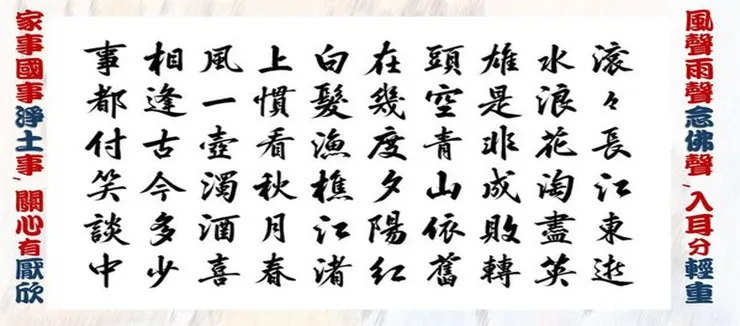 風聲雨聲念佛聲、入耳分輕重
滾々長江東逝
水浪花淘盡英
雄是非成敗轉
頭空青山依舊
在幾度夕陽紅
白髮漁樵江渚
上慣看秋月春
風一壺濁酒喜
相逢古今多少
事都付笑談中
家事國事淨土事、關心有厭欣